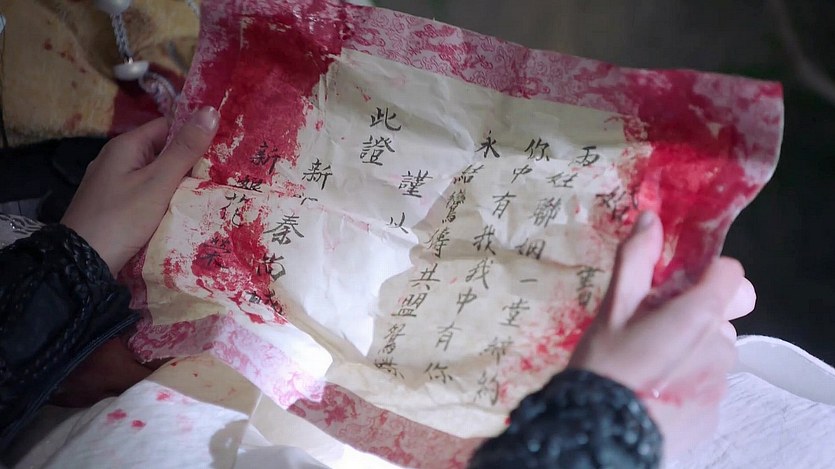 婚書
兩姓聯姻一堂締約
你中有我我中有你
永結鸞儔共盟鴛
謹以
此證
新 秦尚
新娘花